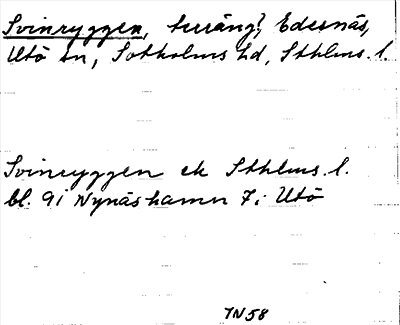 Svinryggen, terräng?, Edesnäs,
Utö sn, Sotholms hd, Sthlms. l.
Svinryggen ek Sthlms. l.
bl. 9i Nynäshamn 7i Utö
IN58